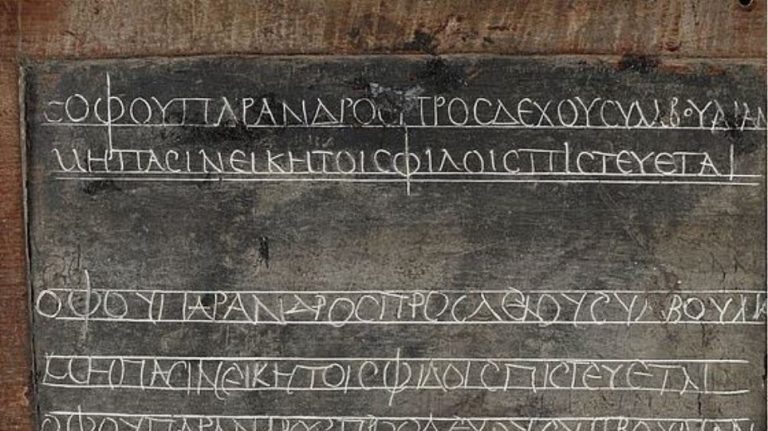 ϹΟΦΟΥΠΑΡΑΝΔΡΟϹΠΡΟϹΔΕΧΟΥϹΥΜΒΟΥΛΙΑΝ
ΜΗΠΑϹΙΝΕΙΚΗΤΟΙϹΦΙΛΟΙϹΠΙϹΤΕΥΕΤΑΙ
ΟΦΟΥΠΑΡΑΝΔΡΟϹΠΡΟϹΔΕΧΟΥϹΥΜΒΟΥΛΙ
ΜΗΠΑϹΙΝΕΙΚΗΤΟΙϹΦΙΛΟΙϹΠΙϹΤΕΥΕΤΑΙ